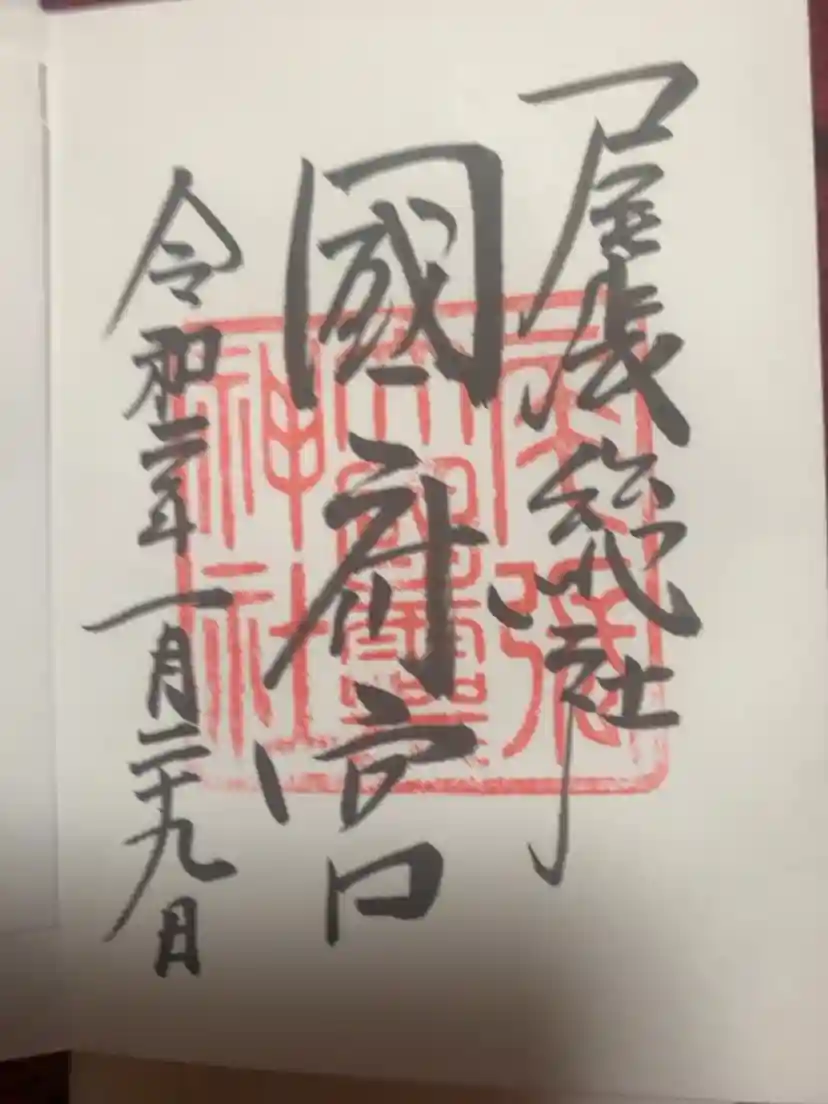 尾張総社
國府宮
令和二年一月二十九日
尾張
大國靈
神社